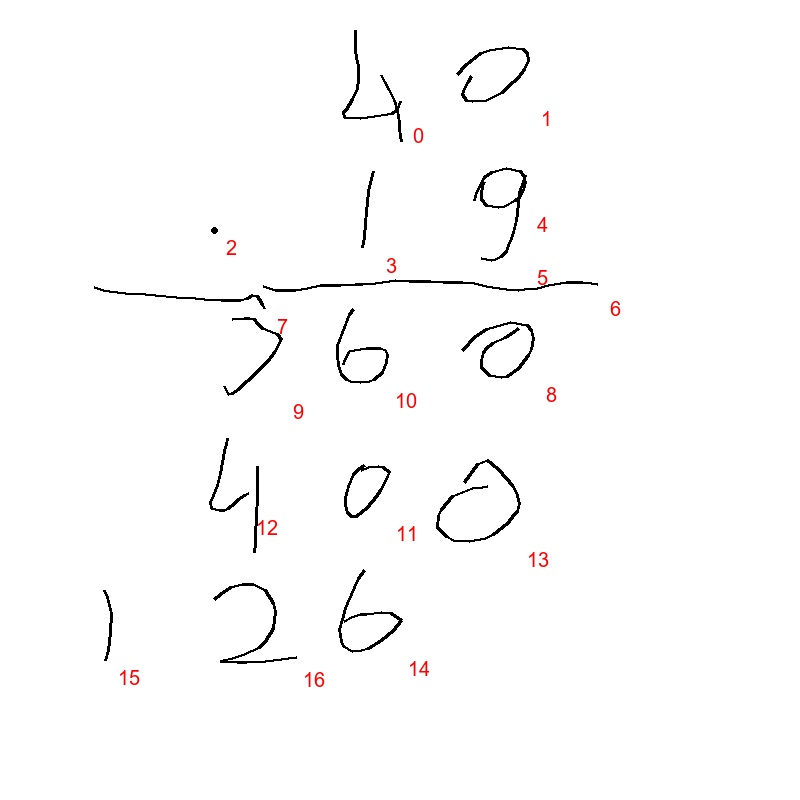 4 0
0 1
. 1 9
2 3 4
5
6
7
3 6 0
9 10 8
4 0 0
12 11 13
1 2 6
15 16 14